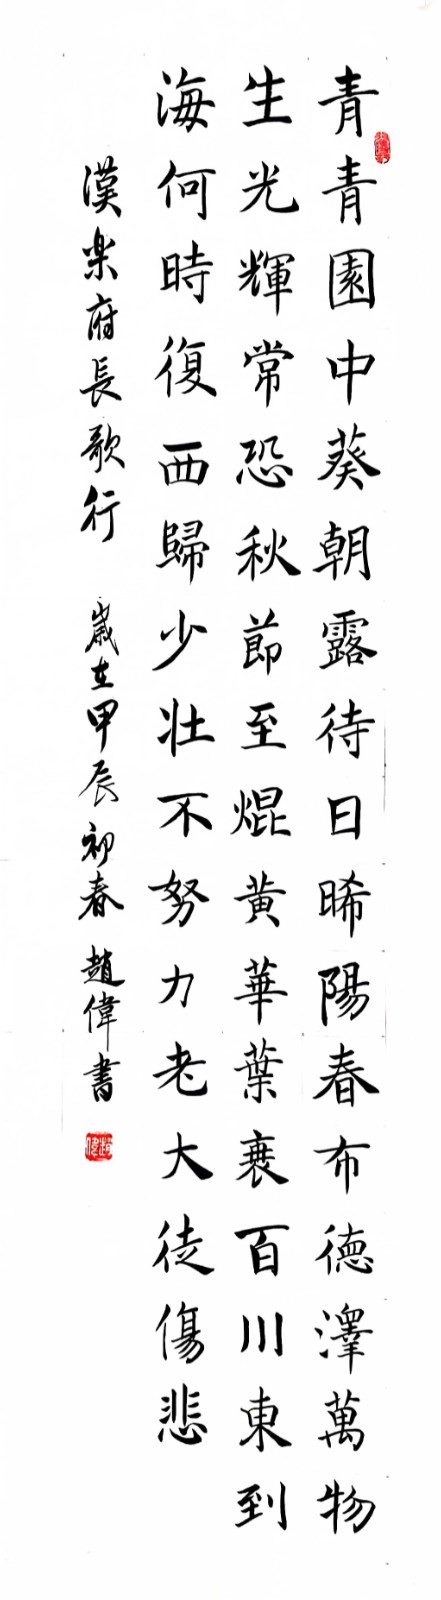 青青園中葵朝露待日晞陽春布德澤萬物
生光輝常恐秋節至焜黃華葉衰百川東到
海何時復西歸少壯不努力老大徒傷悲
漢樂府長歌行 歲在甲辰初春趙偉書
趙偉